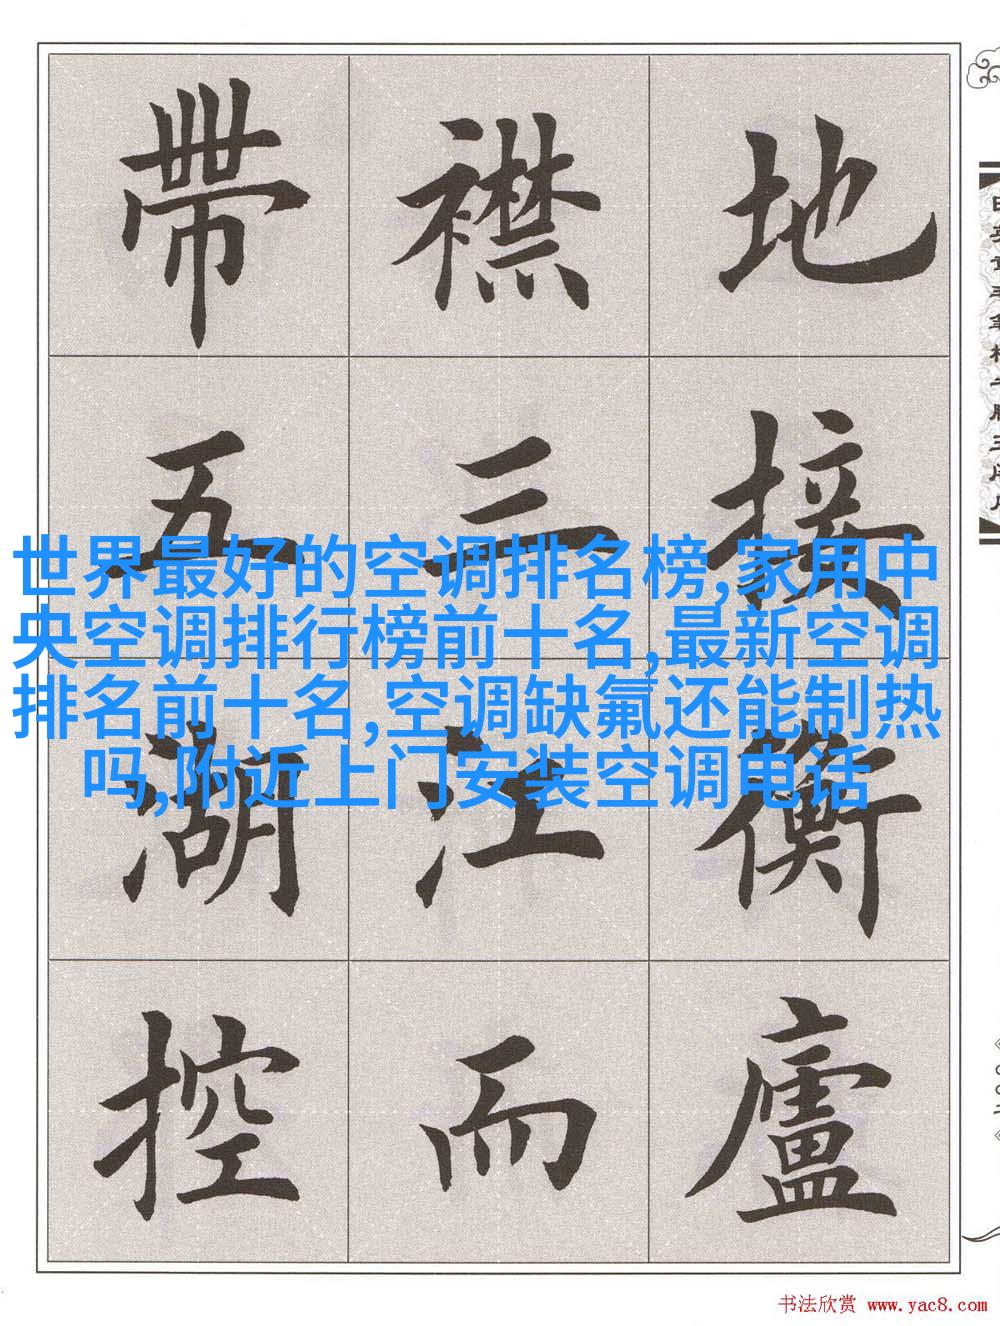 地接衡廬
襟三江而
帶五湖控
世界最好的空调排名榜,家用中
央空调排行榜前十名,最新空调
排名前十名,空调缺氟还能制热
吗,附近上门安装空调电话
书法欣赏 www.yac8.com